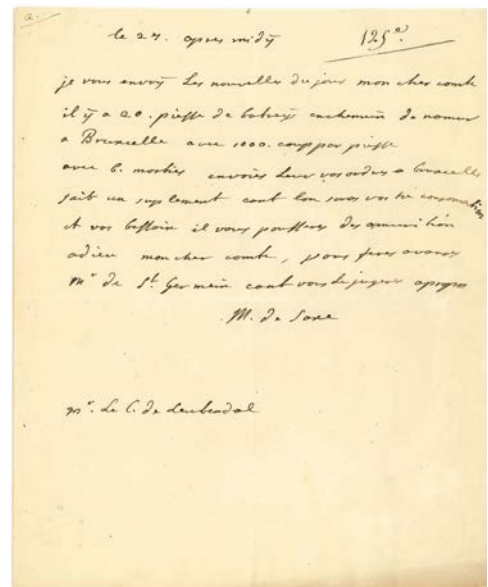 a.
le 27. apres midÿ 125e.
je vous envoÿ Les nouvelles du jour mon cher comte
il ÿ a 20. piesse de batreÿ enchemein de namur
a Bruxcelle avec 1000. coup par piesse
avec 6. morties envoies Leur vos ordes a bruxcelles
fait un suplement cant lon saras vostre consomation
et vos bessoin il vous pousseres des amunitión
adieu mon cher comte, vous feres avanses
mr de St. Germein cant vous le jugeres apropos
M. de Saxe
mr. Le C. de Leuhendal